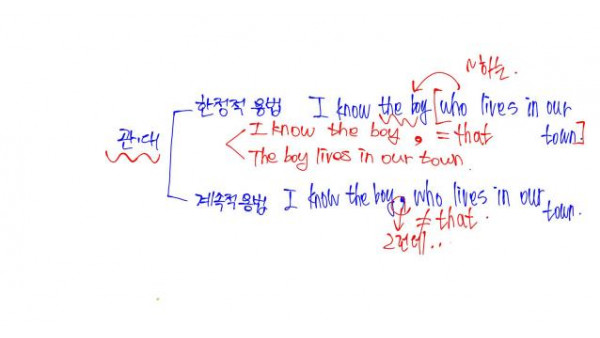 ~하는.
한정적 용법 I know the boy [who lives in our town]
I know the boy. = that
관.대
The boy lives in our town.
계속적용법 I know the boy, who lives in our town.
≠ that.
그런데..